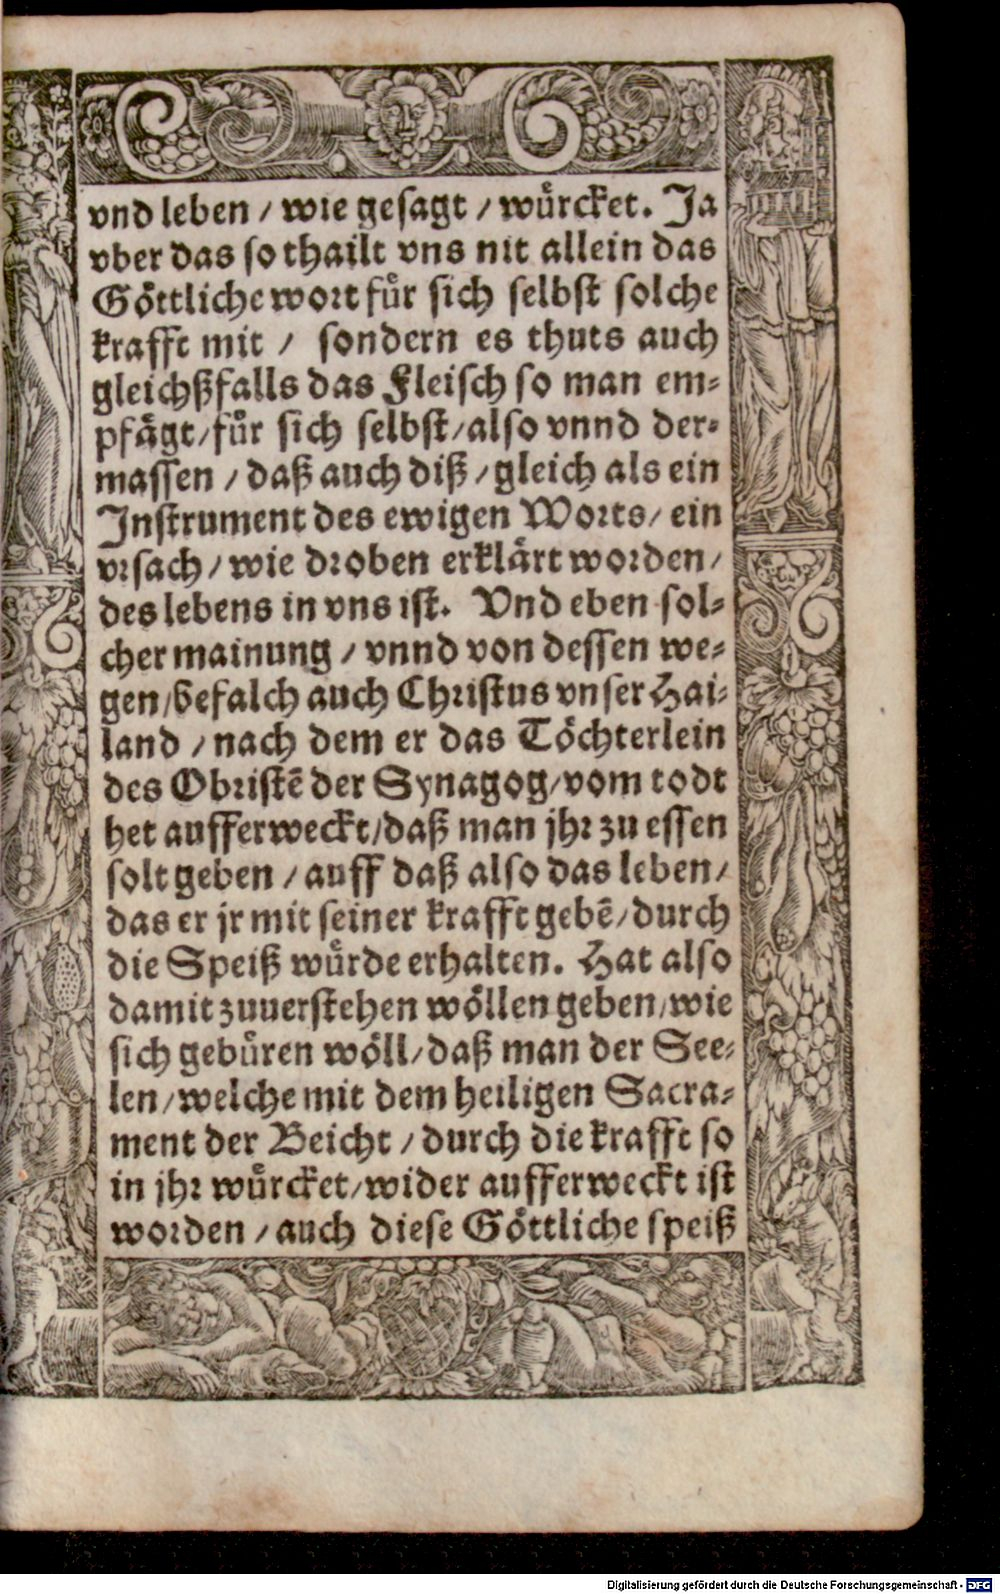 vnd leben / wie gesagt / würcket. Ja
vber das so thailt vns nit allein das
Göttliche wort für sich selbst solche
krafft mit / sondern es thuts auch
gleichßfalls das Fleisch so man em⸗
pfägt / für sich selbst / also vnnd der⸗
massen / daß auch diß / gleich als ein
Instrument des ewigen Worts / ein
vrsach / wie droben erklärt worden /
des lebens in vns ist. Vnd eben sol⸗
cher mainung / vnnd von dessen we⸗
gen / befalch auch Christus vnser Hai⸗
land / nach dem er das Töchterlein
des Obristē der Synagog / vom todt
het aufferweckt / daß man jhr zu essen
solt geben / auff daß also das leben /
das er jr mit seiner krafft gebē / durch
die Speiß würde erhalten. Hat also
damit zuuerstehen wöllen geben / wie
sich gebüren wöll / daß man der See⸗
len / welche mit dem heiligen Sacra⸗
ment der Beicht / durch die krafft so
in jhr würcket / wider aufferweckt ist
worden / auch diese Göttliche speiß
Digitalisierung gefördert durch die Deutsche Forschungsgemeinschaft - DFG